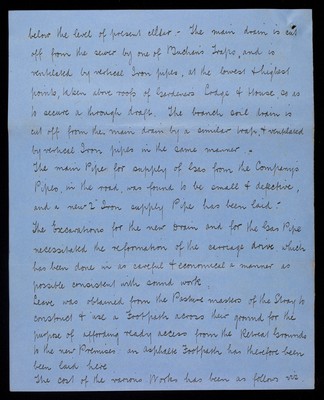 below the level of present cellar - The main drain is cut
off from the sewer by one of Buchan's Traps, and is
ventilated by vertical Iron pipes, at the lowest & highest
points, taken above roofs of Gardeners Lodge & House so as
to secure a through draft. The branch soil drain is
cut off from the main drain by a similar trap, & ventilated
by vertical Iron pipes in the same manner.
The main Pipe for supply of Gas from the Company's
Pipes, in the road, was found to be small & defective,
and a new 2" Iron supply Pipe has been laid -
The Excavations for the new drain and for the Gas Pipe
necessitated the reformation of the carriage drive which
has been done in as careful & economical a manner as
possible consistent with sound work.
Leave was obtained from the Pasture masters of the Stray to
construct & use a Footpath across their ground for the
purpose of affording ready access from the Retreat Grounds
to the new Premises an asphalte Footpath has therefore been
been laid here
The cost of the various Works has been as follows viz.